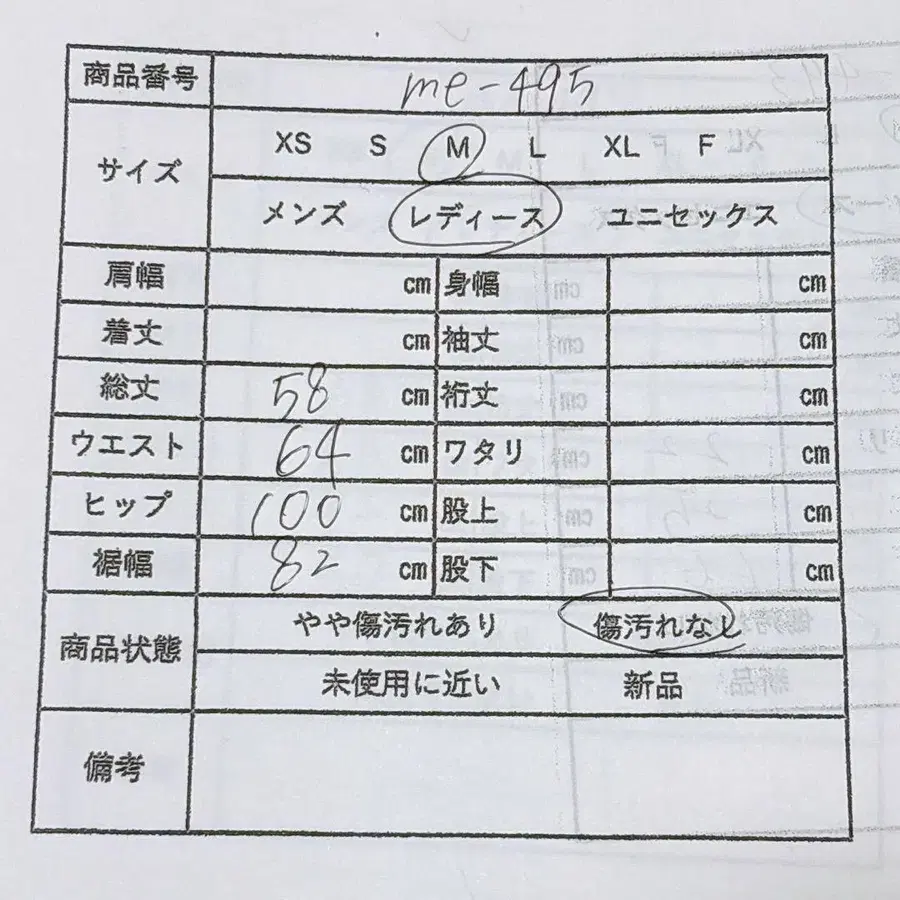 商品番号 me-495
サイズ XS S M L XL F
メンズ レディース ユニセックス
肩幅 cm 身幅 cm
着丈 cm 袖丈 cm
総丈 58 cm 裄丈 cm
ウエスト 64 cm ワタリ cm
ヒップ 100 cm 股上 cm
裾幅 82 cm 股下 cm
商品状態 やや傷汚れあり 傷汚れなし
未使用に近い 新品
備考